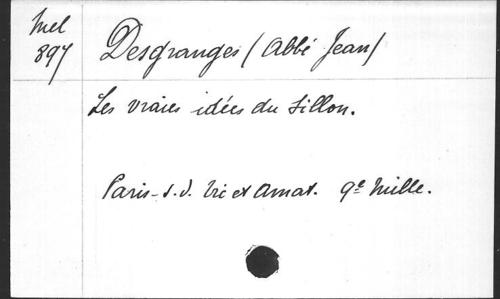 Mel
897
Desgranges (Abbé Jean)
Les vraies idées du Sillon.
Paris - s.d. Vic et Amat. 9e Mille.